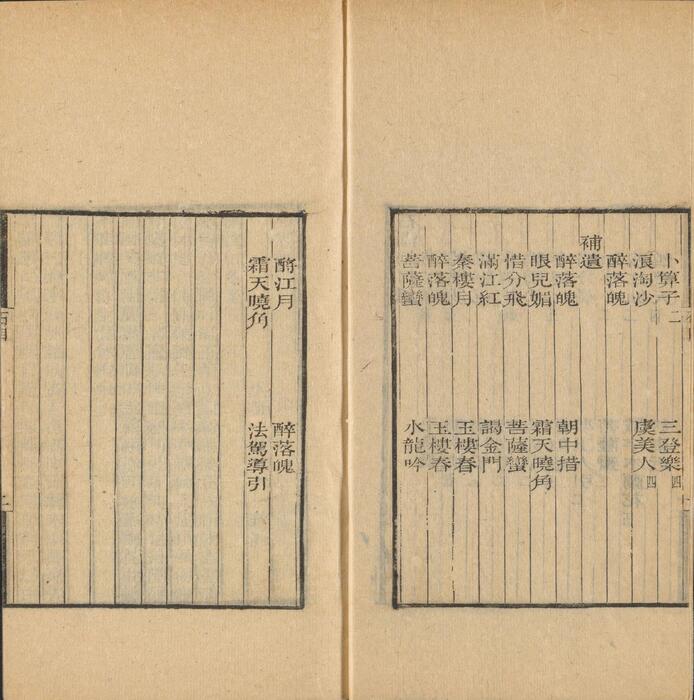 卜算子二 三登樂四
浪淘沙 虞美人四
醉落魄
補遺
醉落魄 朝中措
眼兒媚 霜天曉角
惜分飛 菩薩蠻
滿江紅 謁金門
秦樓月 玉樓春
醉落魄 玉樓春
菩薩蠻 水龍吟
酹江月 醉落魄
霜天曉角 法駕導引